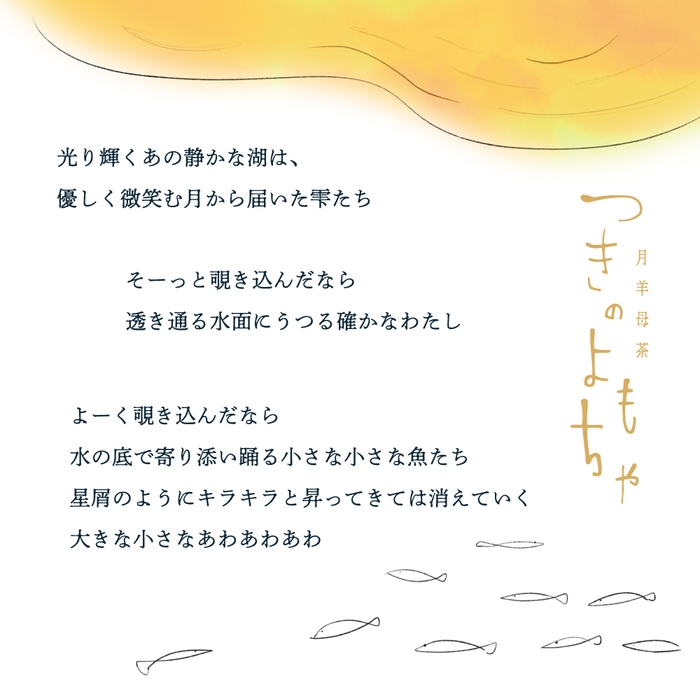 光り輝くあの静かな湖は、
優しく微笑む月から届いた雫たち
そーっと覗き込んだなら
透き通る水面にうつる確かなわたし
よーく覗き込んだなら
水の底で寄り添い踊る小さな小さな魚たち
星屑のようにキラキラと昇ってきては消えていく
大きな小さなあわあわあわ
月羊母茶
つきのよもちや